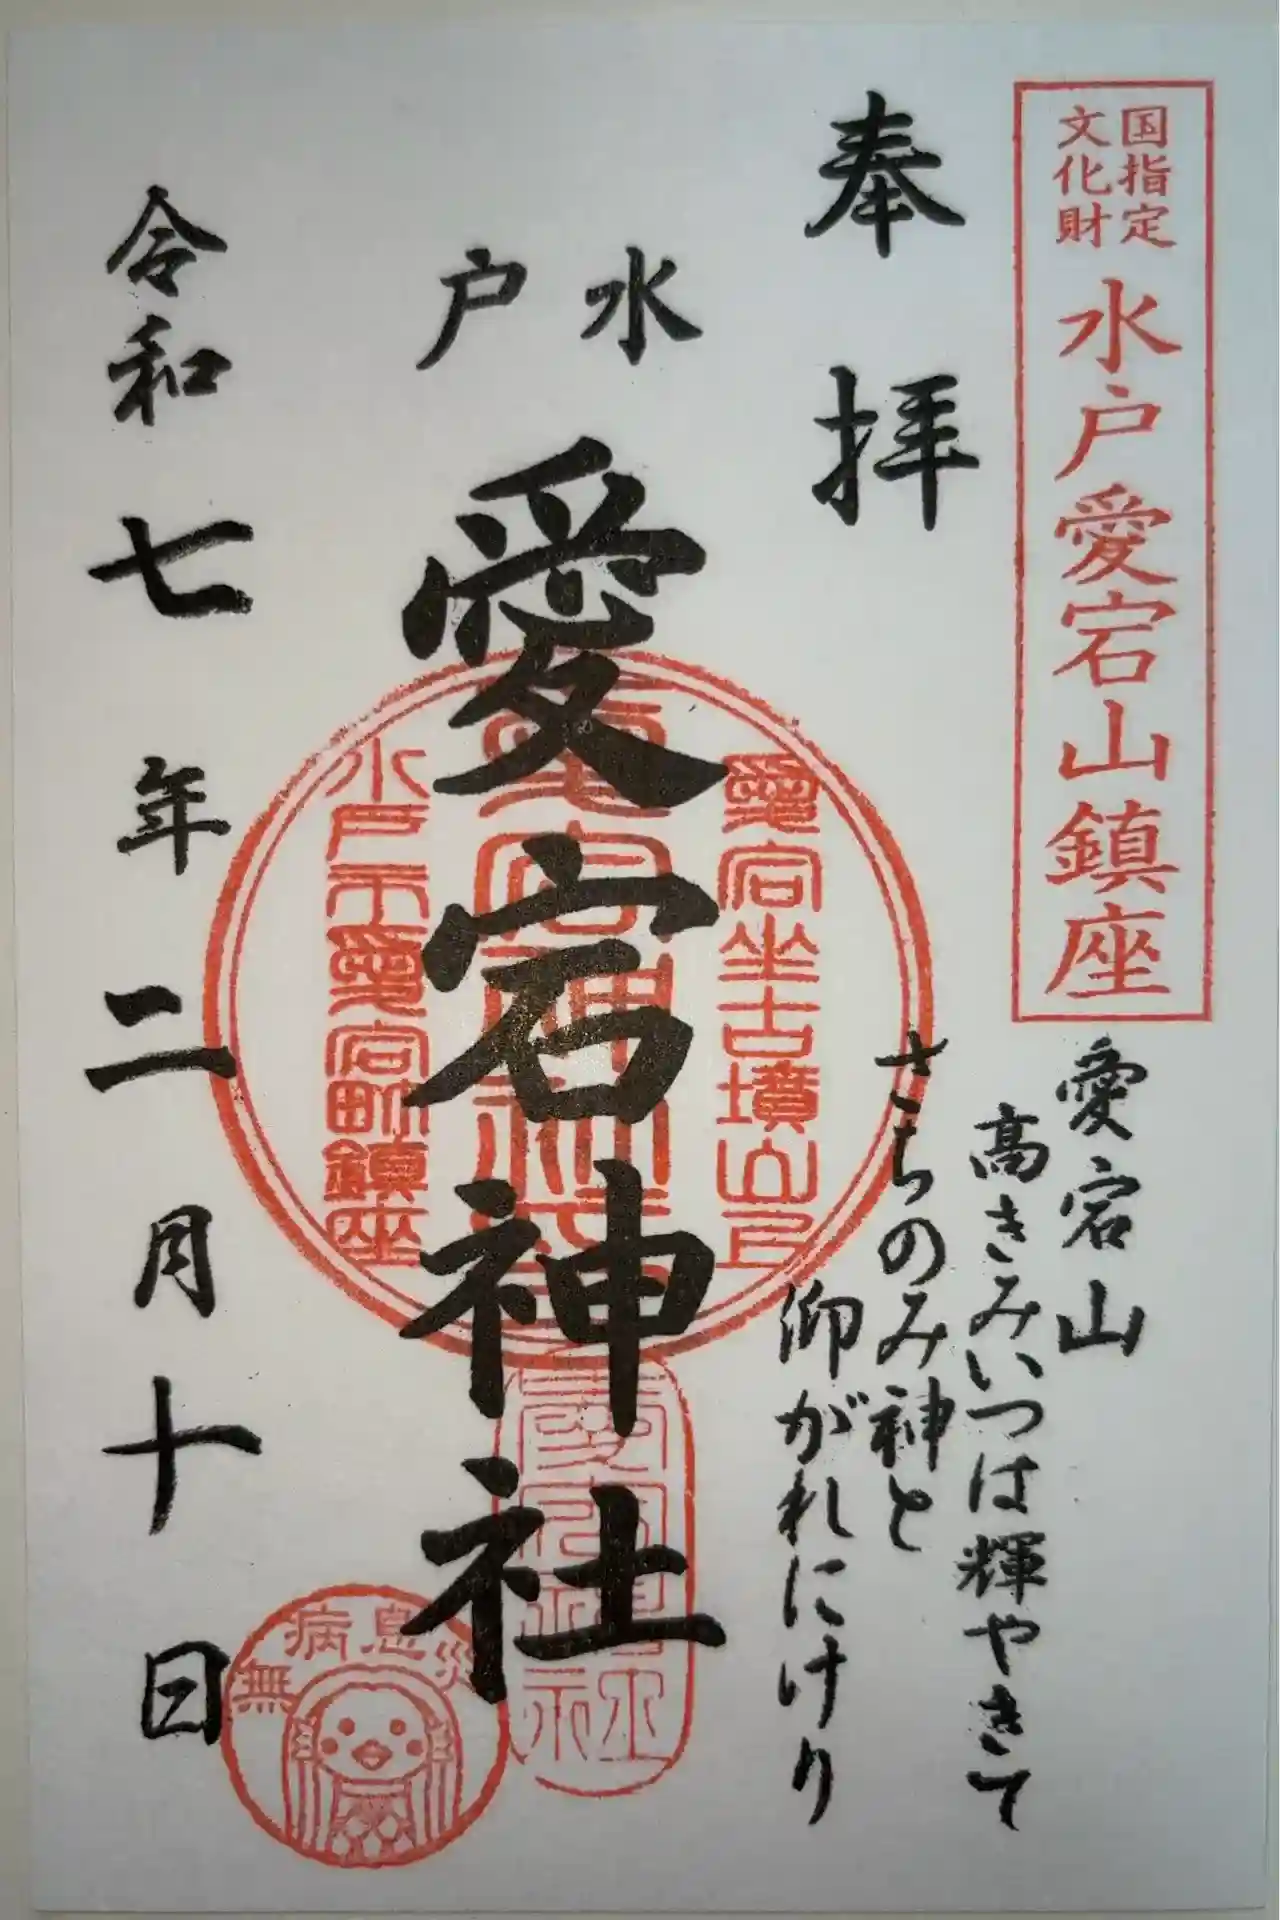 国指定
文化財
水戸愛宕山鎮座
奉拝
愛宕山
高きみいつは輝やきて
さちのみ神と
仰がれにけり
水戸
愛宕神社
愛宕坐古墳山上
愛宕神社
水戸市愛宕町鎮座
無病息災
令和七年二月十日